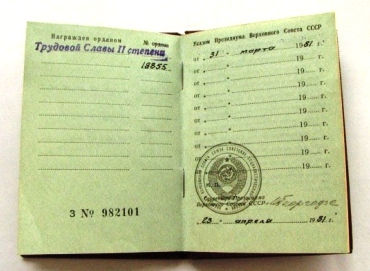 Награжден орденом
№ ордена
Трудовой Славы II степени
18855
З № 982101
Указом Президиума Верховного Совета СССР
от „ 31 “ марта 1981 г.
от „ “ 19 г.
от „ “ 19 г.
от „ “ 19 г.
от „ “ 19 г.
от „ “ 19 г.
от „ “ 19 г.
от „ “ 19 г.
от „ “ 19 г.
М.П.
Секретарь Президиума
Верховного Совета СССР
„ 23 “ апреля 1981 г.